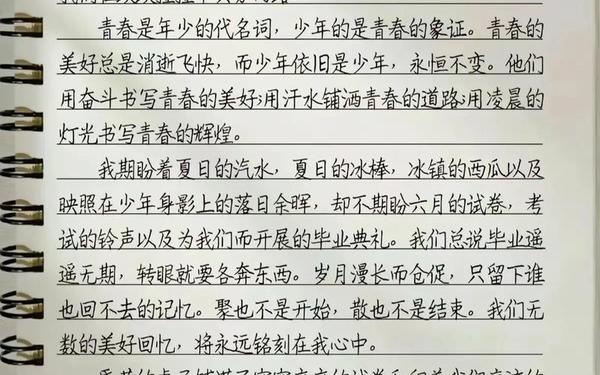 青春是年少的代名词，少年的是青春的象证。青春的
美好总是消逝飞快，而少年依旧是少年，永恒不变。他们
用奋斗书写青春的美好;用汗水铺洒青春的道路;用凌晨的
灯光书写青春的辉煌。
我期盼着夏日的汽水，夏日的冰棒，冰镇的西瓜以及
映照在少年身影上的落日余晖，却不期盼六月的试卷，考
试的铃声以及为我们而开展的毕业典礼。我们总说,毕业遥
遥无期，转眼就要各奔东西。岁月漫长而仓促，只留下谁
也回不去的记忆。聚也不是开始，散也不是结束。我们无
数的美好回忆，将永远铭刻在我心中。